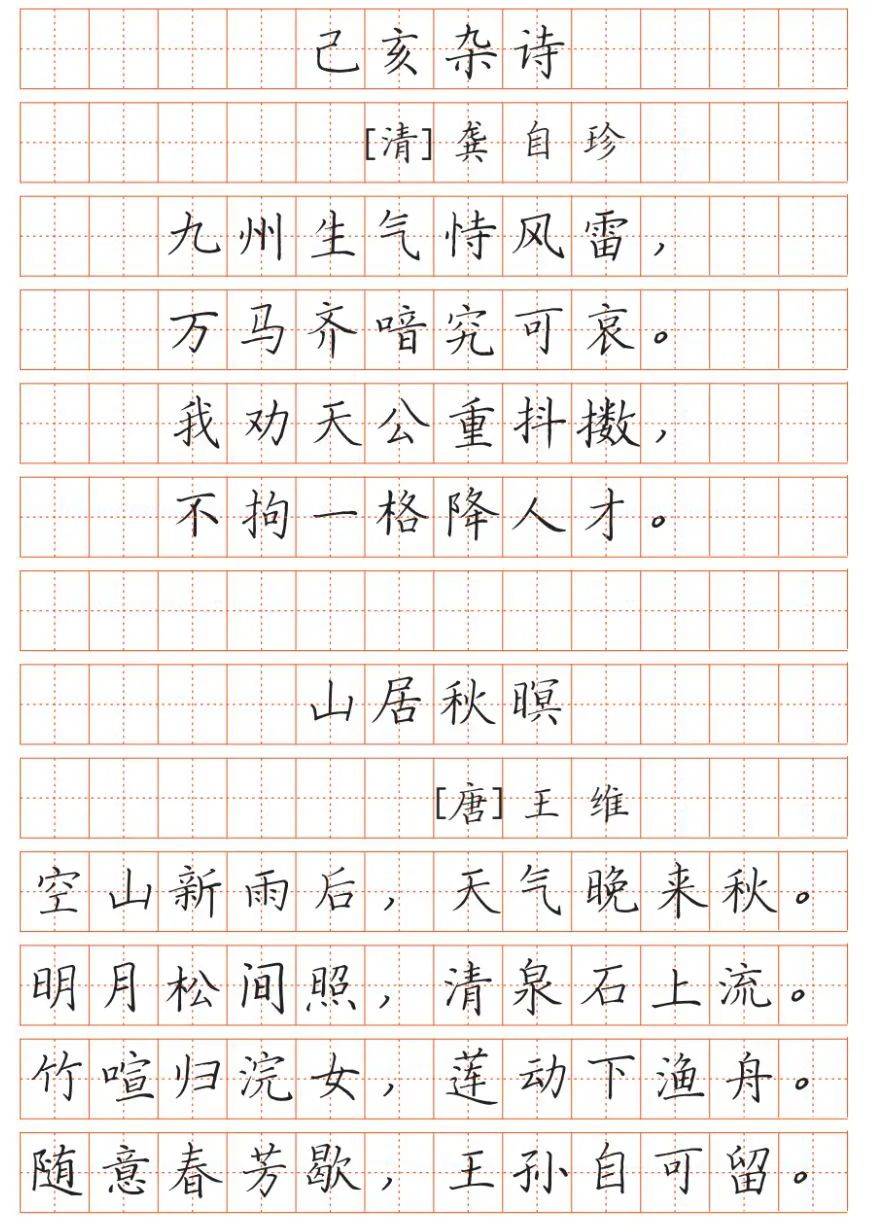 己亥杂诗
[清]龚自珍
九州生气恃风雷，
万马齐喑究可哀。
我劝天公重抖擞，
不拘一格降人才。
山居秋暝
[唐]王维
空山新雨后，天气晚来秋。
明月松间照，清泉石上流。
竹喧归浣女，莲动下渔舟。
随意春芳歇，王孙自可留。